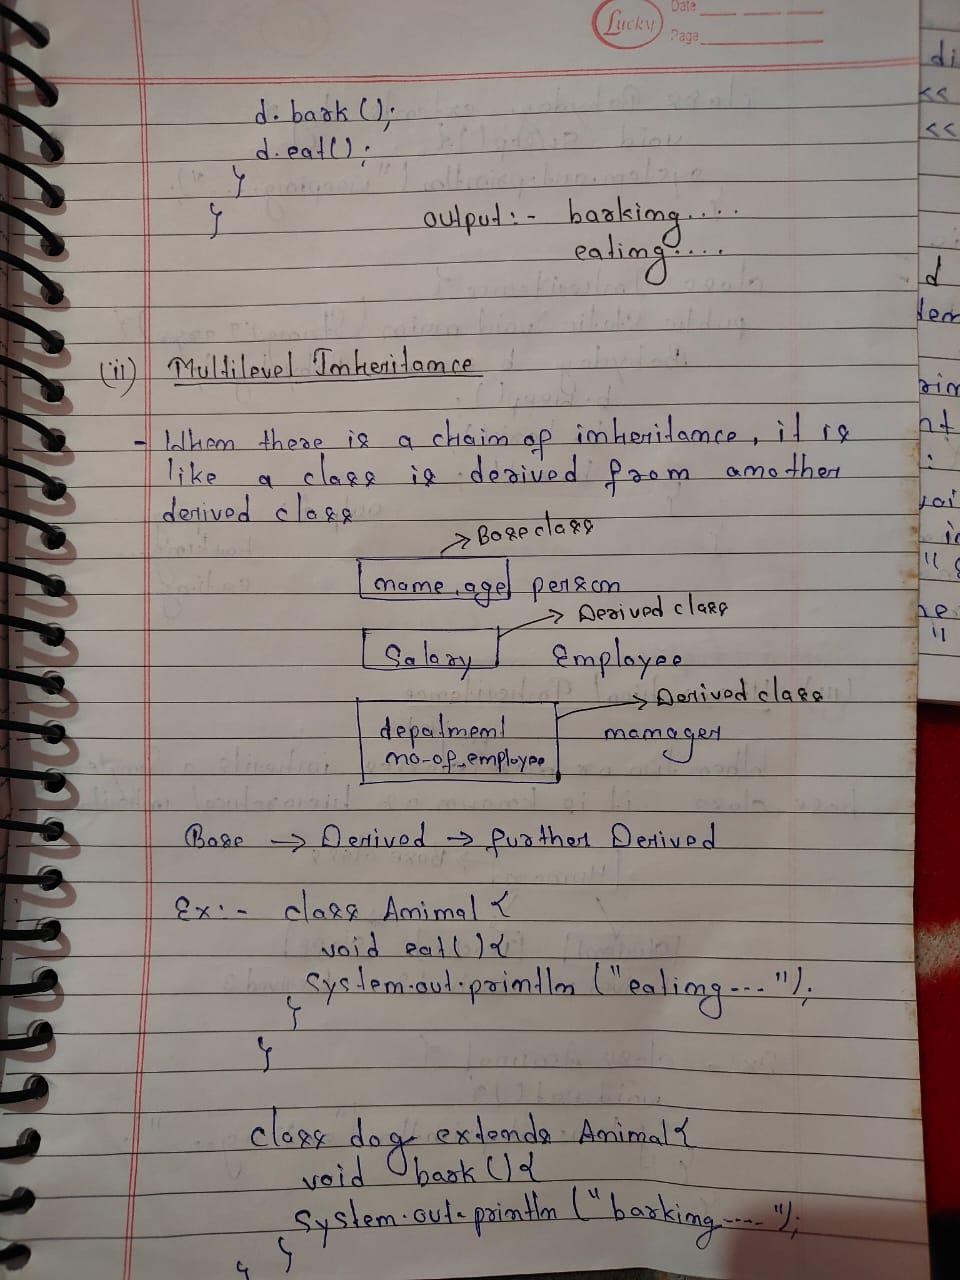 Lucky
Date
Page
d. bark ();
d. eat();
}
}
output:- barking....
eating....
(ii) Multilevel Inheritance
- When there is a chain of inheritance, it is
like a class is derived from another
derived class
Base class
name, age person
Derived class
Salary Employee
Derived class
depatment manager
no-of-employee
Base → Derived → further Derived
Ex:- class Animal {
void eat() {
System.out.println ("eating---");
}
}
class dog extends Animal {
void bark () {
System.out.println ("barking----");
}
}